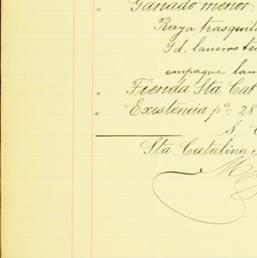 " Ganado menor:
Raya trasquil
Yd. laneros te
empaque lan
" Tienda Sta Cat
" Existencia pª 28
S. C
Sta. Catalina
M